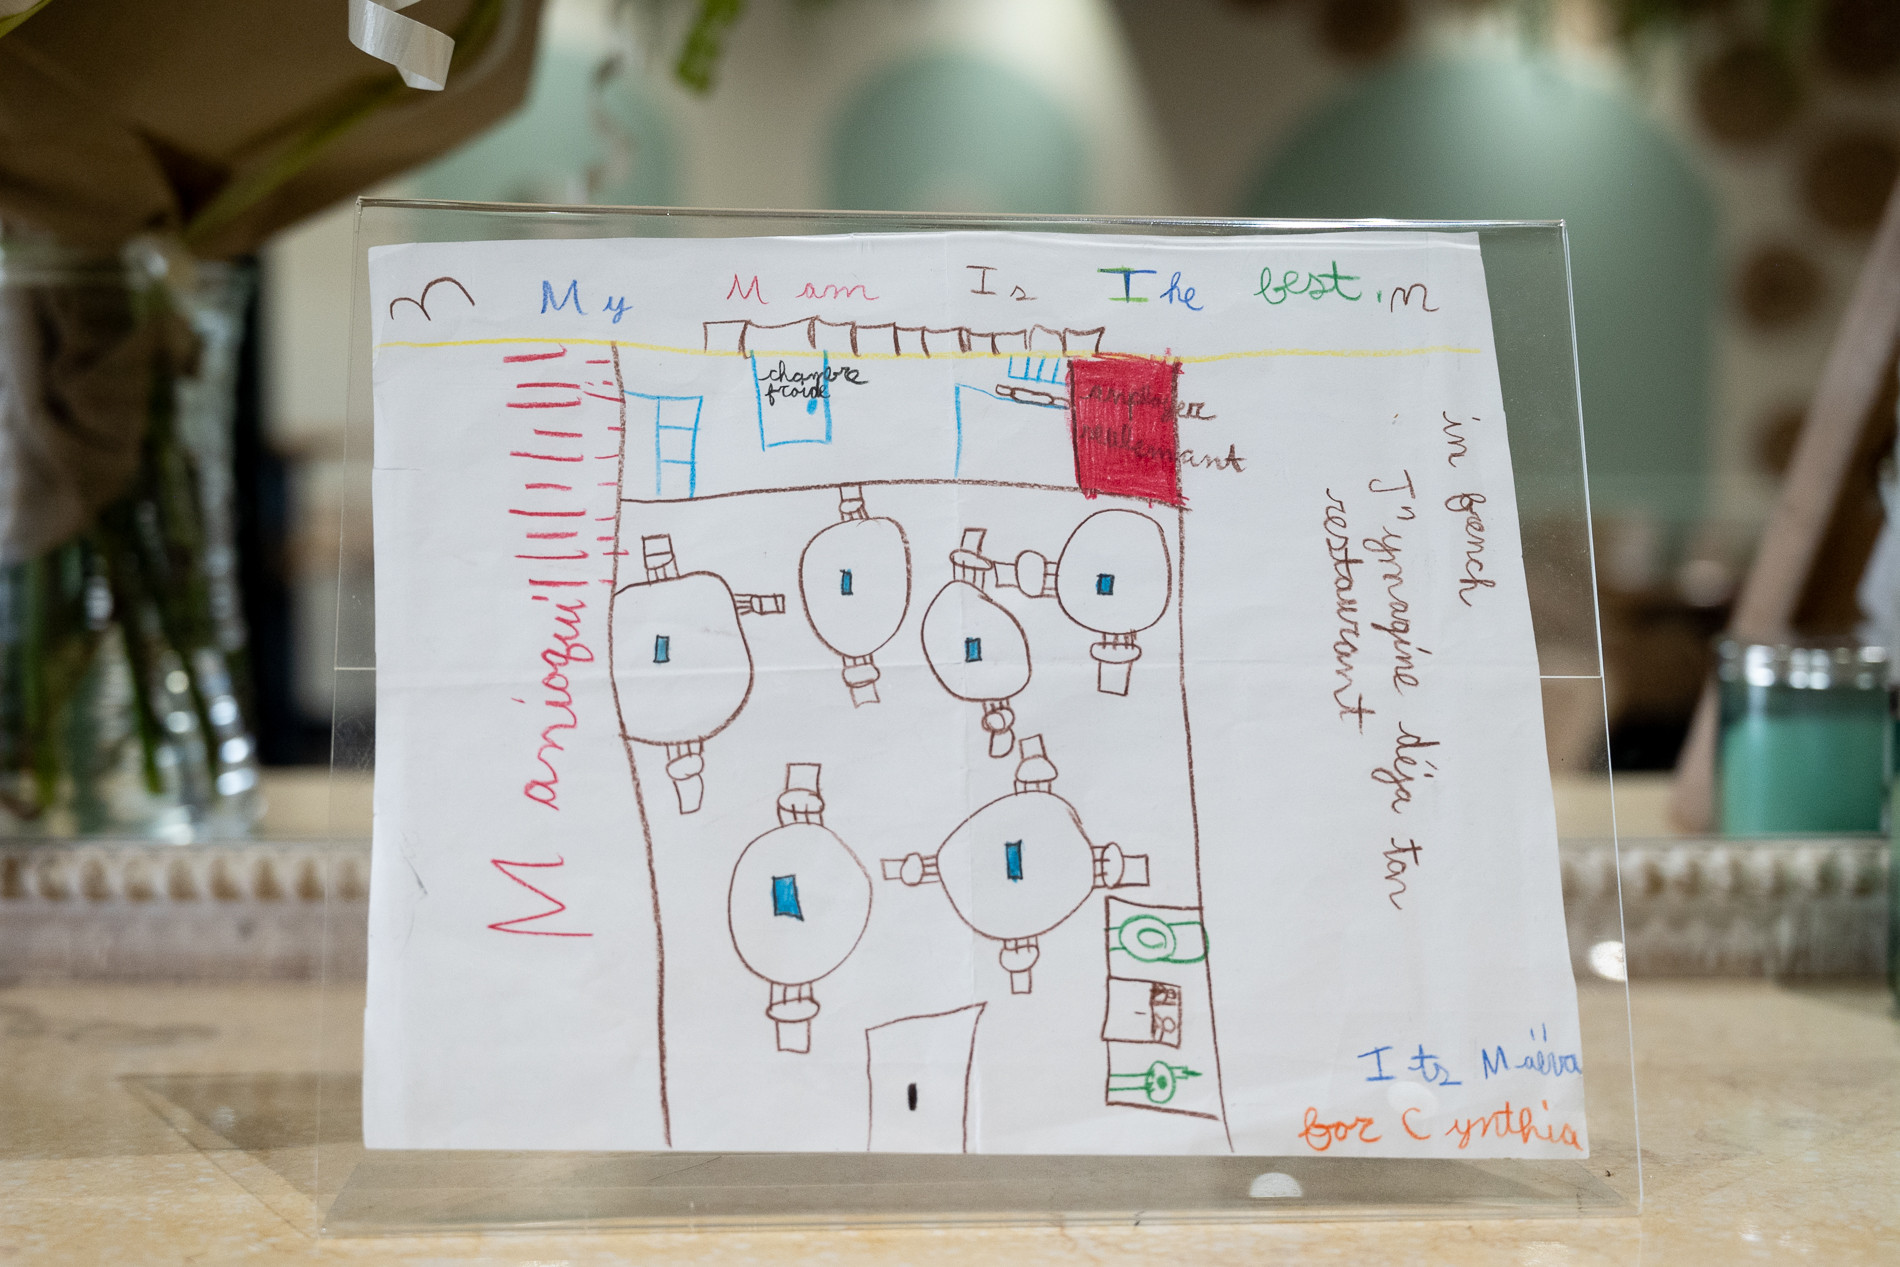 My Mam Is The best.
chambre
froide
employer
seulemant
Manioqui
in french
J'ymagine déja ton
restaurant
Its Máëva
for Cynthia